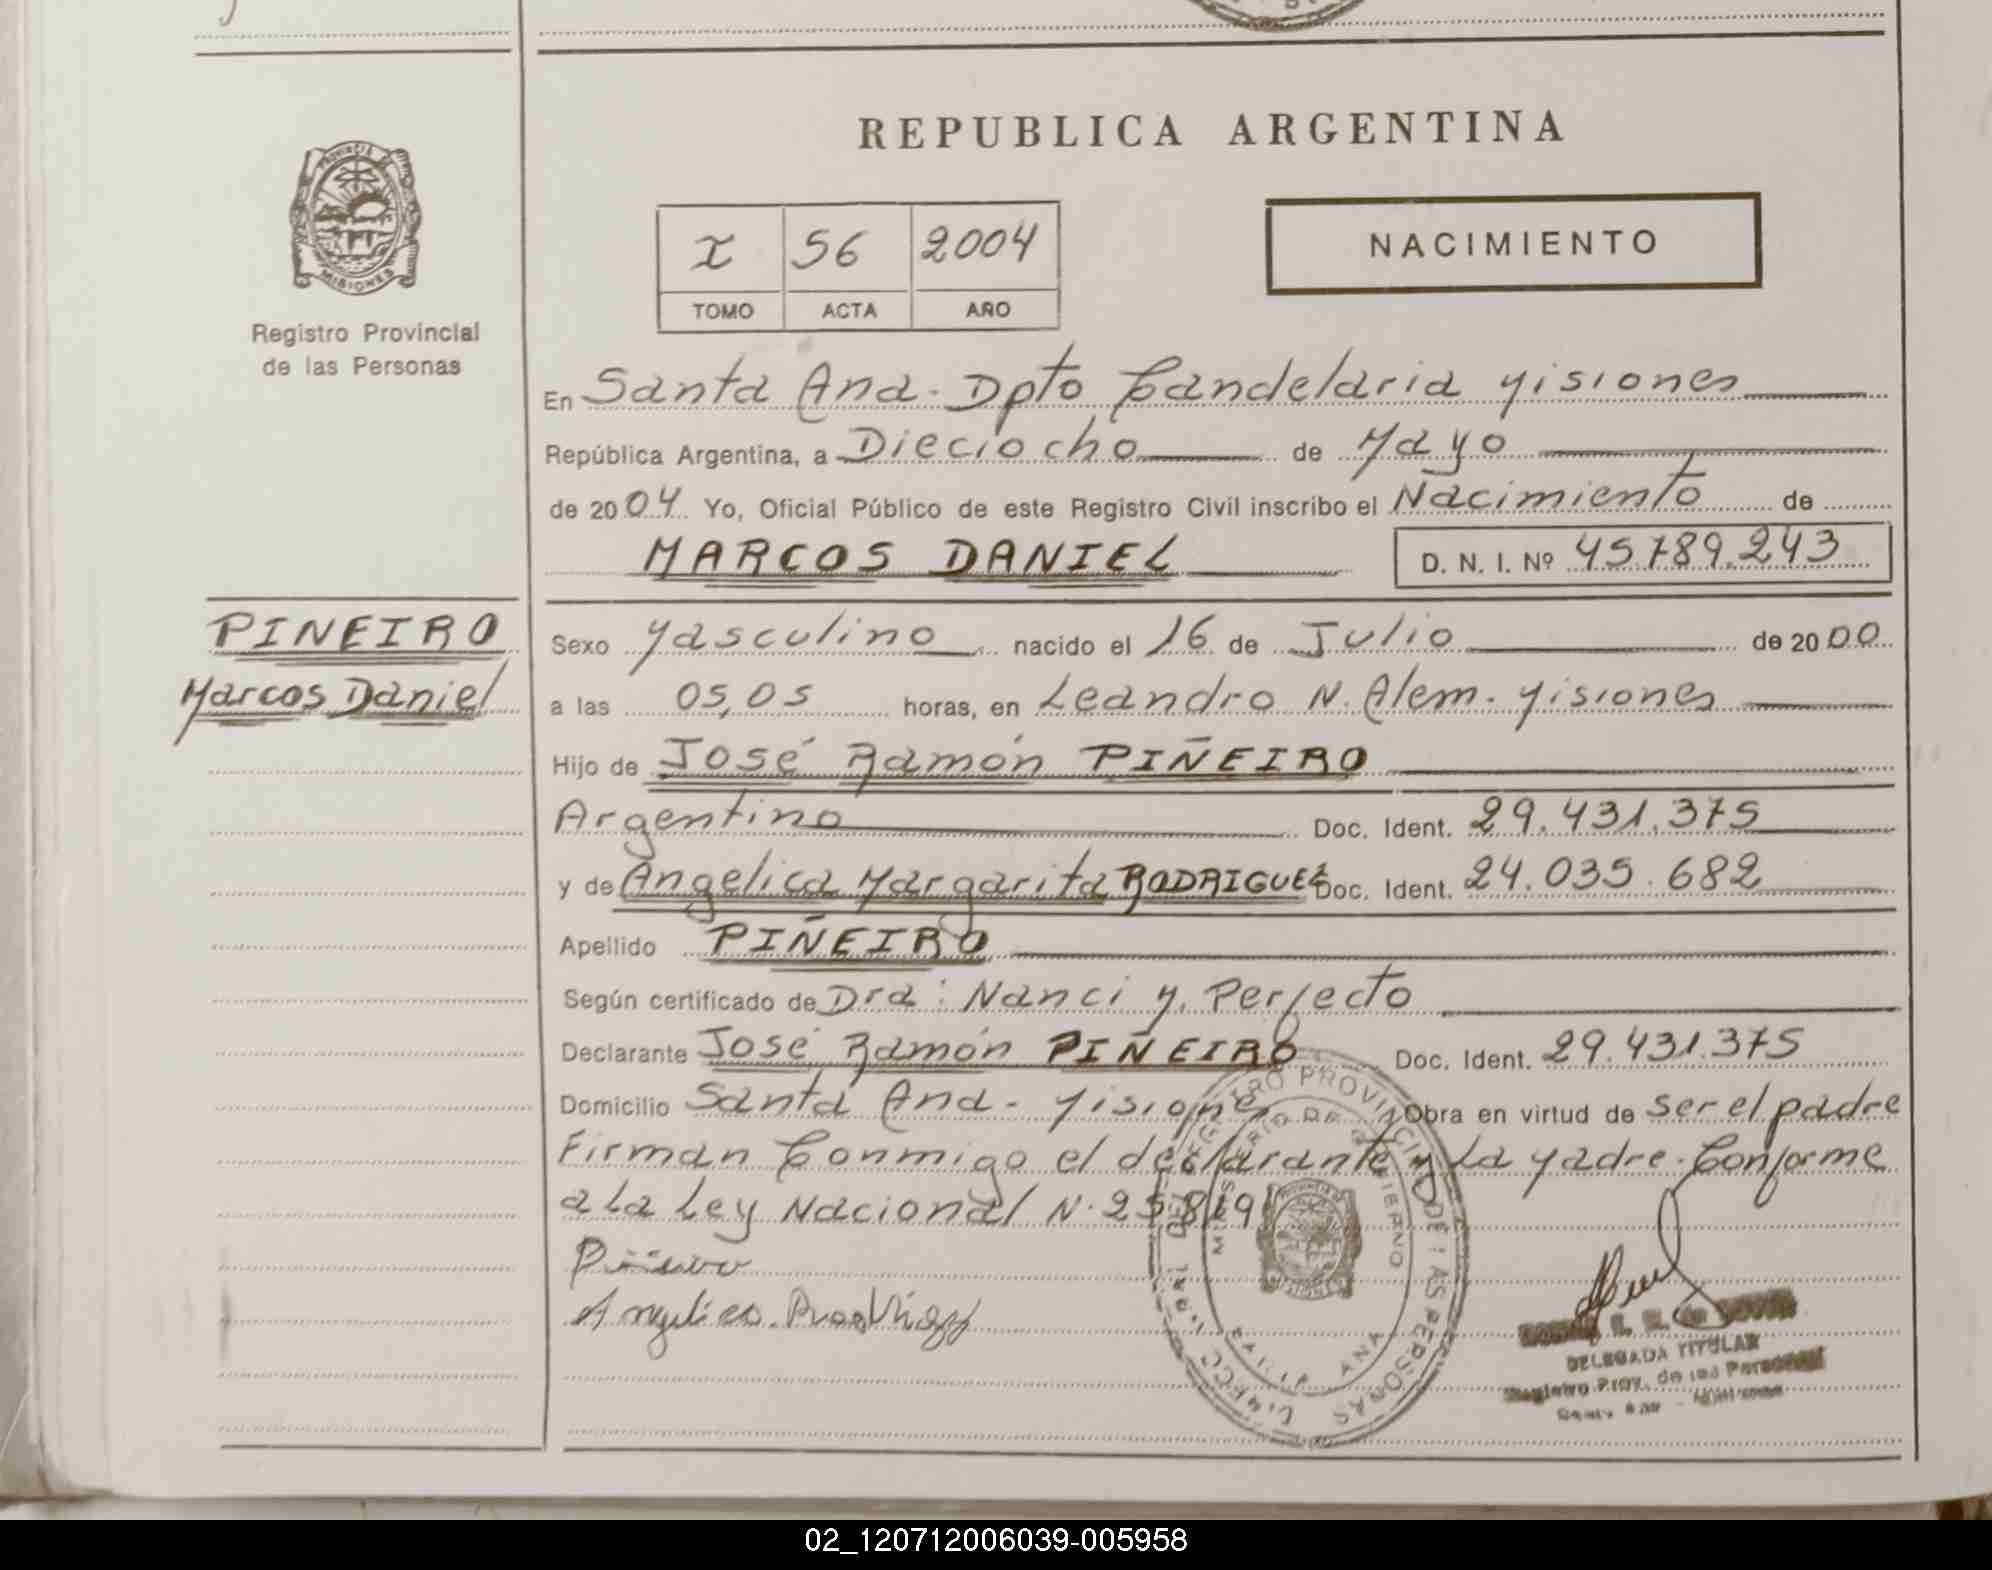 REPUBLICA ARGENTINA
PROVINCIA DE
MISIONES
Registro Provincial
de las Personas
I 56 2004
TOMO ACTA AÑO
NACIMIENTO
En Santa Ana. Dpto Candelaria Misiones
República Argentina, a Dieciocho de Mayo
de 2004 Yo, Oficial Público de este Registro Civil inscribo el Nacimiento de
MARCOS DANIEL D. N. I. Nº 45.789.243
PINEIRO
Marcos Daniel
Sexo Masculino nacido el 16 de Julio de 2000
a las 05,05 horas, en Leandro N. Alem. Misiones
Hijo de José Ramón PIÑEIRO
Argentino Doc. Ident. 29.431.375
y de Angelica Margarita RODRIGUEZ Doc. Ident. 24.035.682
Apellido PIÑEIRO
Según certificado de Dra: Nanci M. Perfecto
Declarante José Ramón PIÑEIRO Doc. Ident. 29.431.375
Domicilio Santa Ana - Misiones Obra en virtud de ser el padre
Firman Conmigo el declarante y La Madre. Conforme
a La Ley Nacional N. 25.819
Piñeiro
Angelica Rodriguez
DELEGADA TITULAR
Registro Prov. de las Personas
02_120712006039-005958